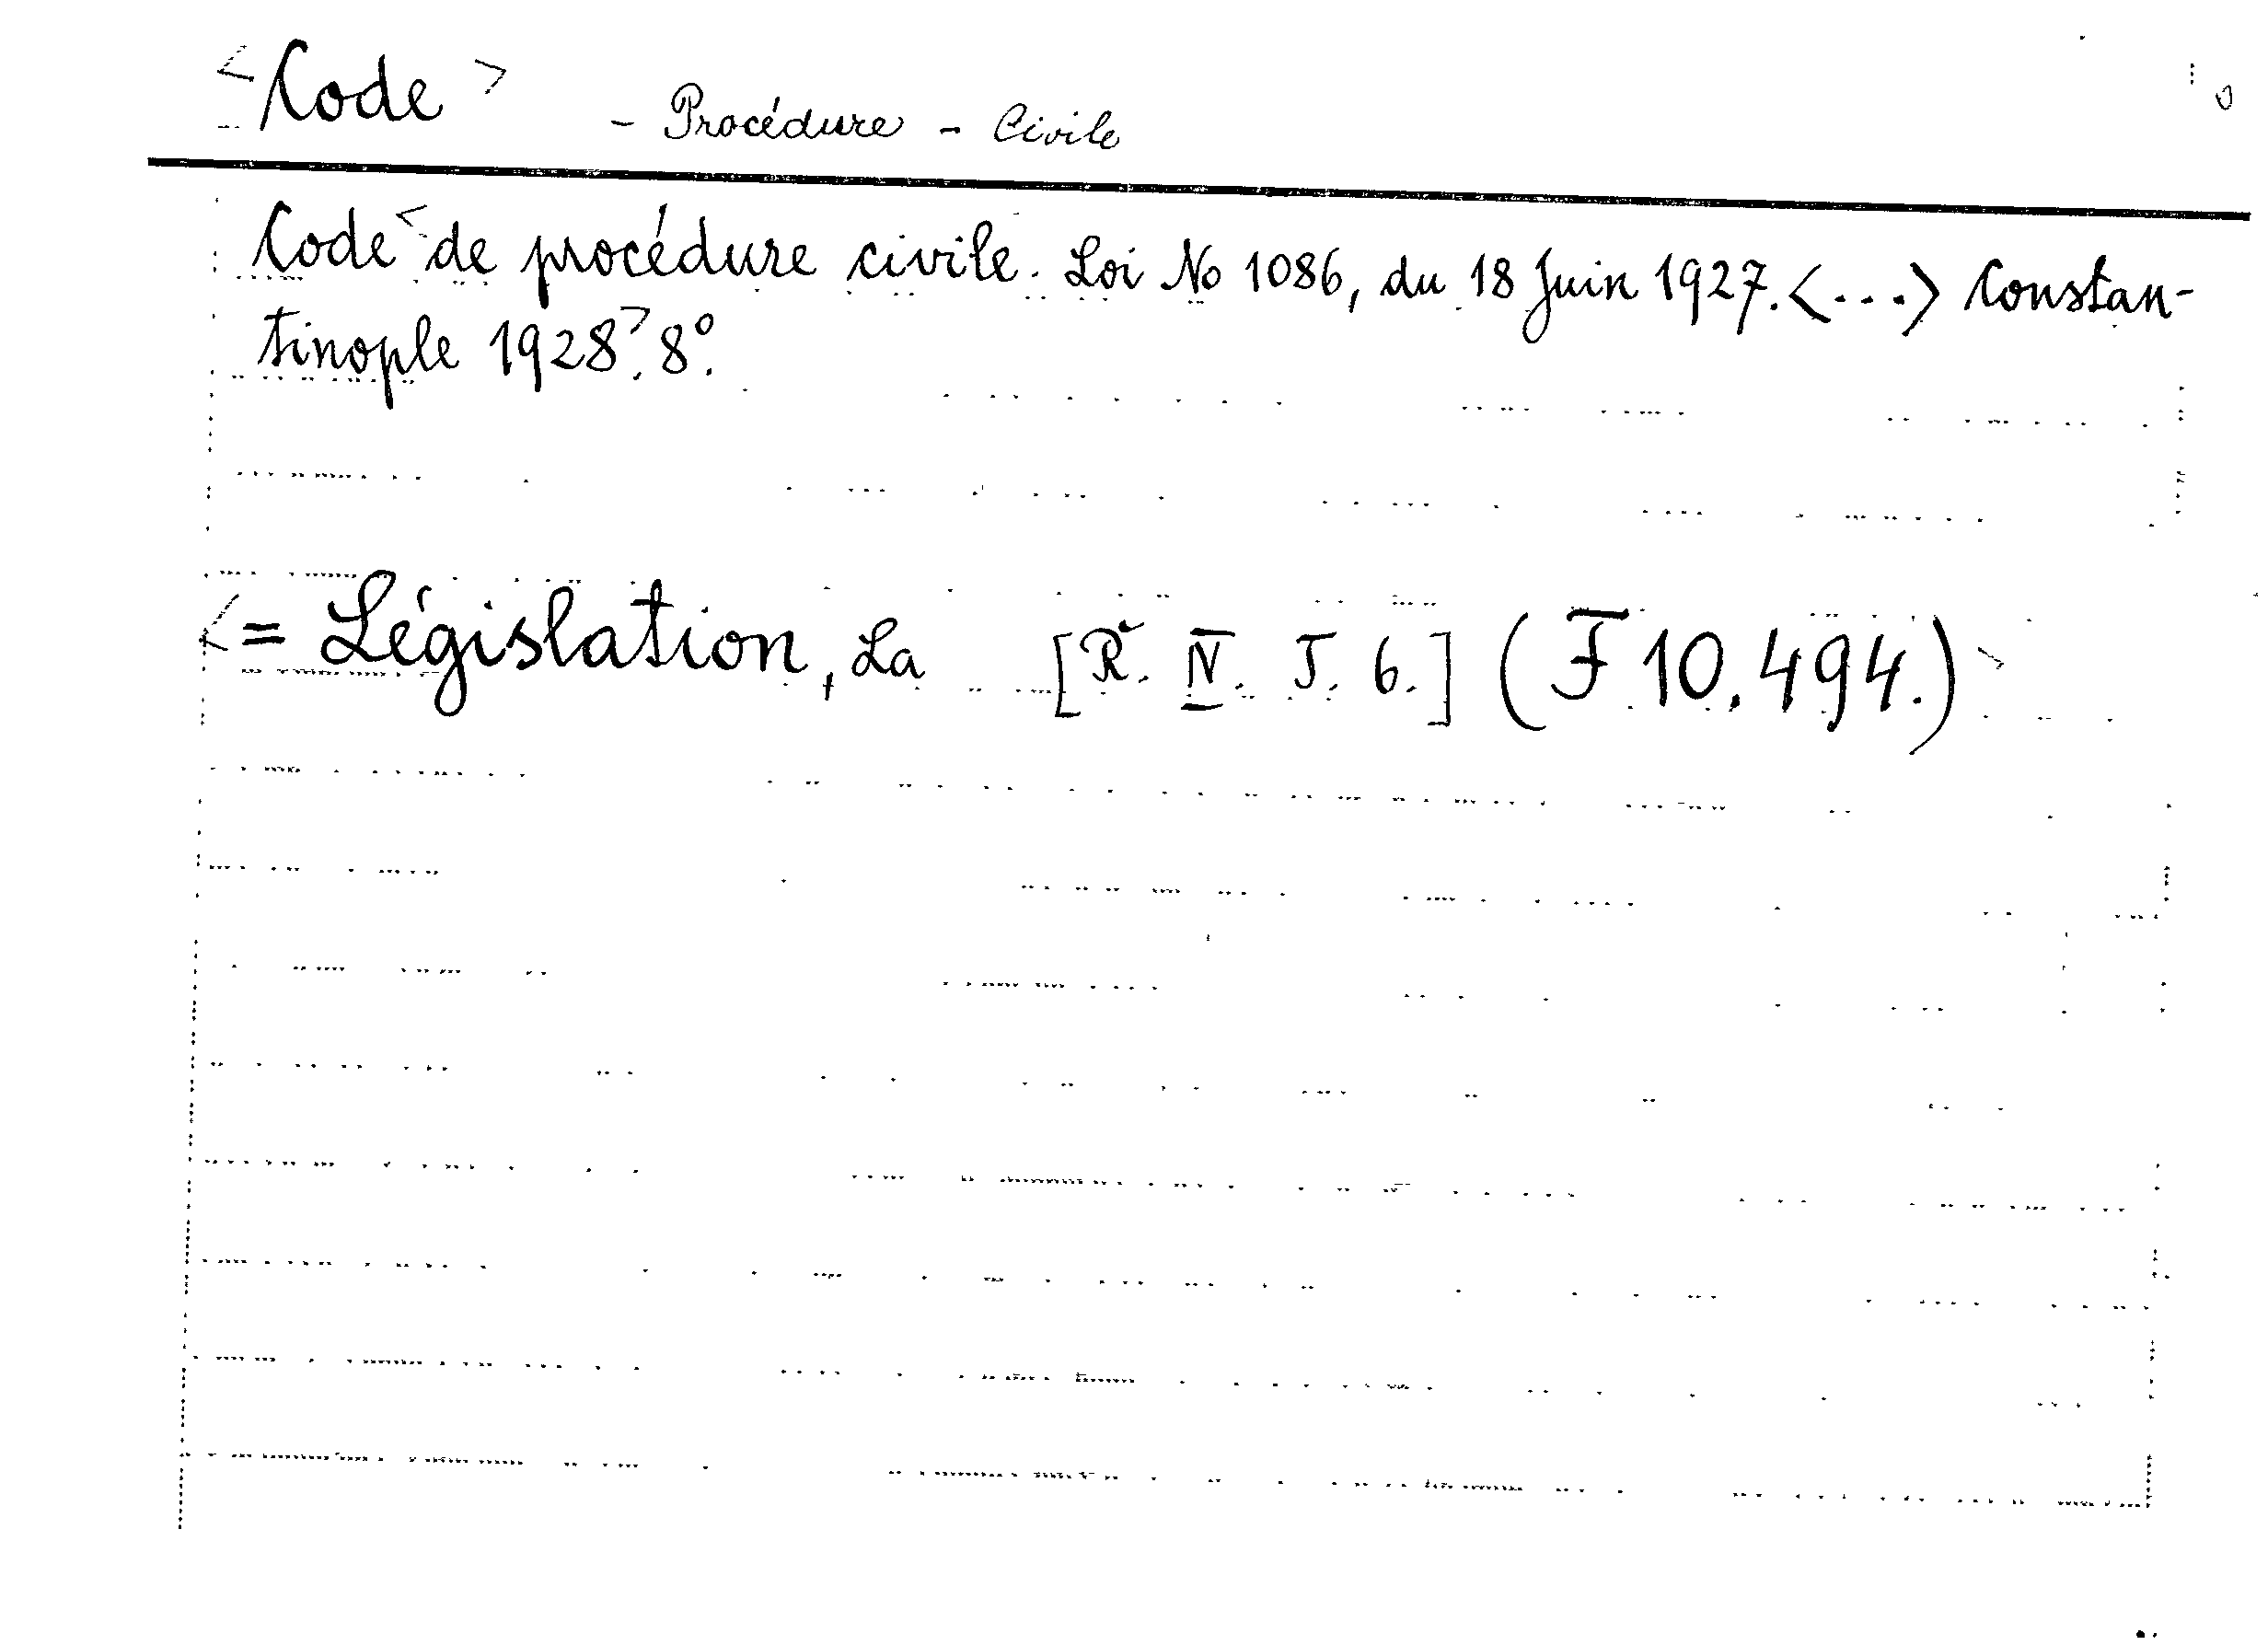 <Code> - Procédure - Civile
Code <de procédure civile. Loi No 1086, du 18 Juin 1927. <...> Constan-
tinople 1928>. 8°.
<= Législation, La [Ř. N. T. 6.] (F 10.494.)>